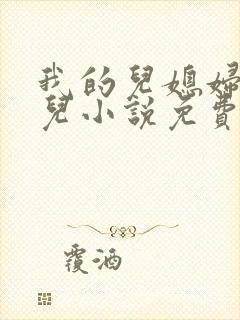 我的兒媳婦
兒小說免費
覆酒